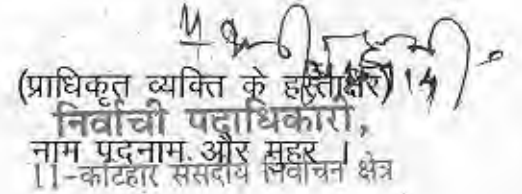 (प्राधिकृत व्यक्ति के हस्ताक्षर)
निर्वाची पदाधिकारी,
नाम पदनाम और मुहर ।
11-कटिहार संसदीय निर्वाचन क्षेत्र